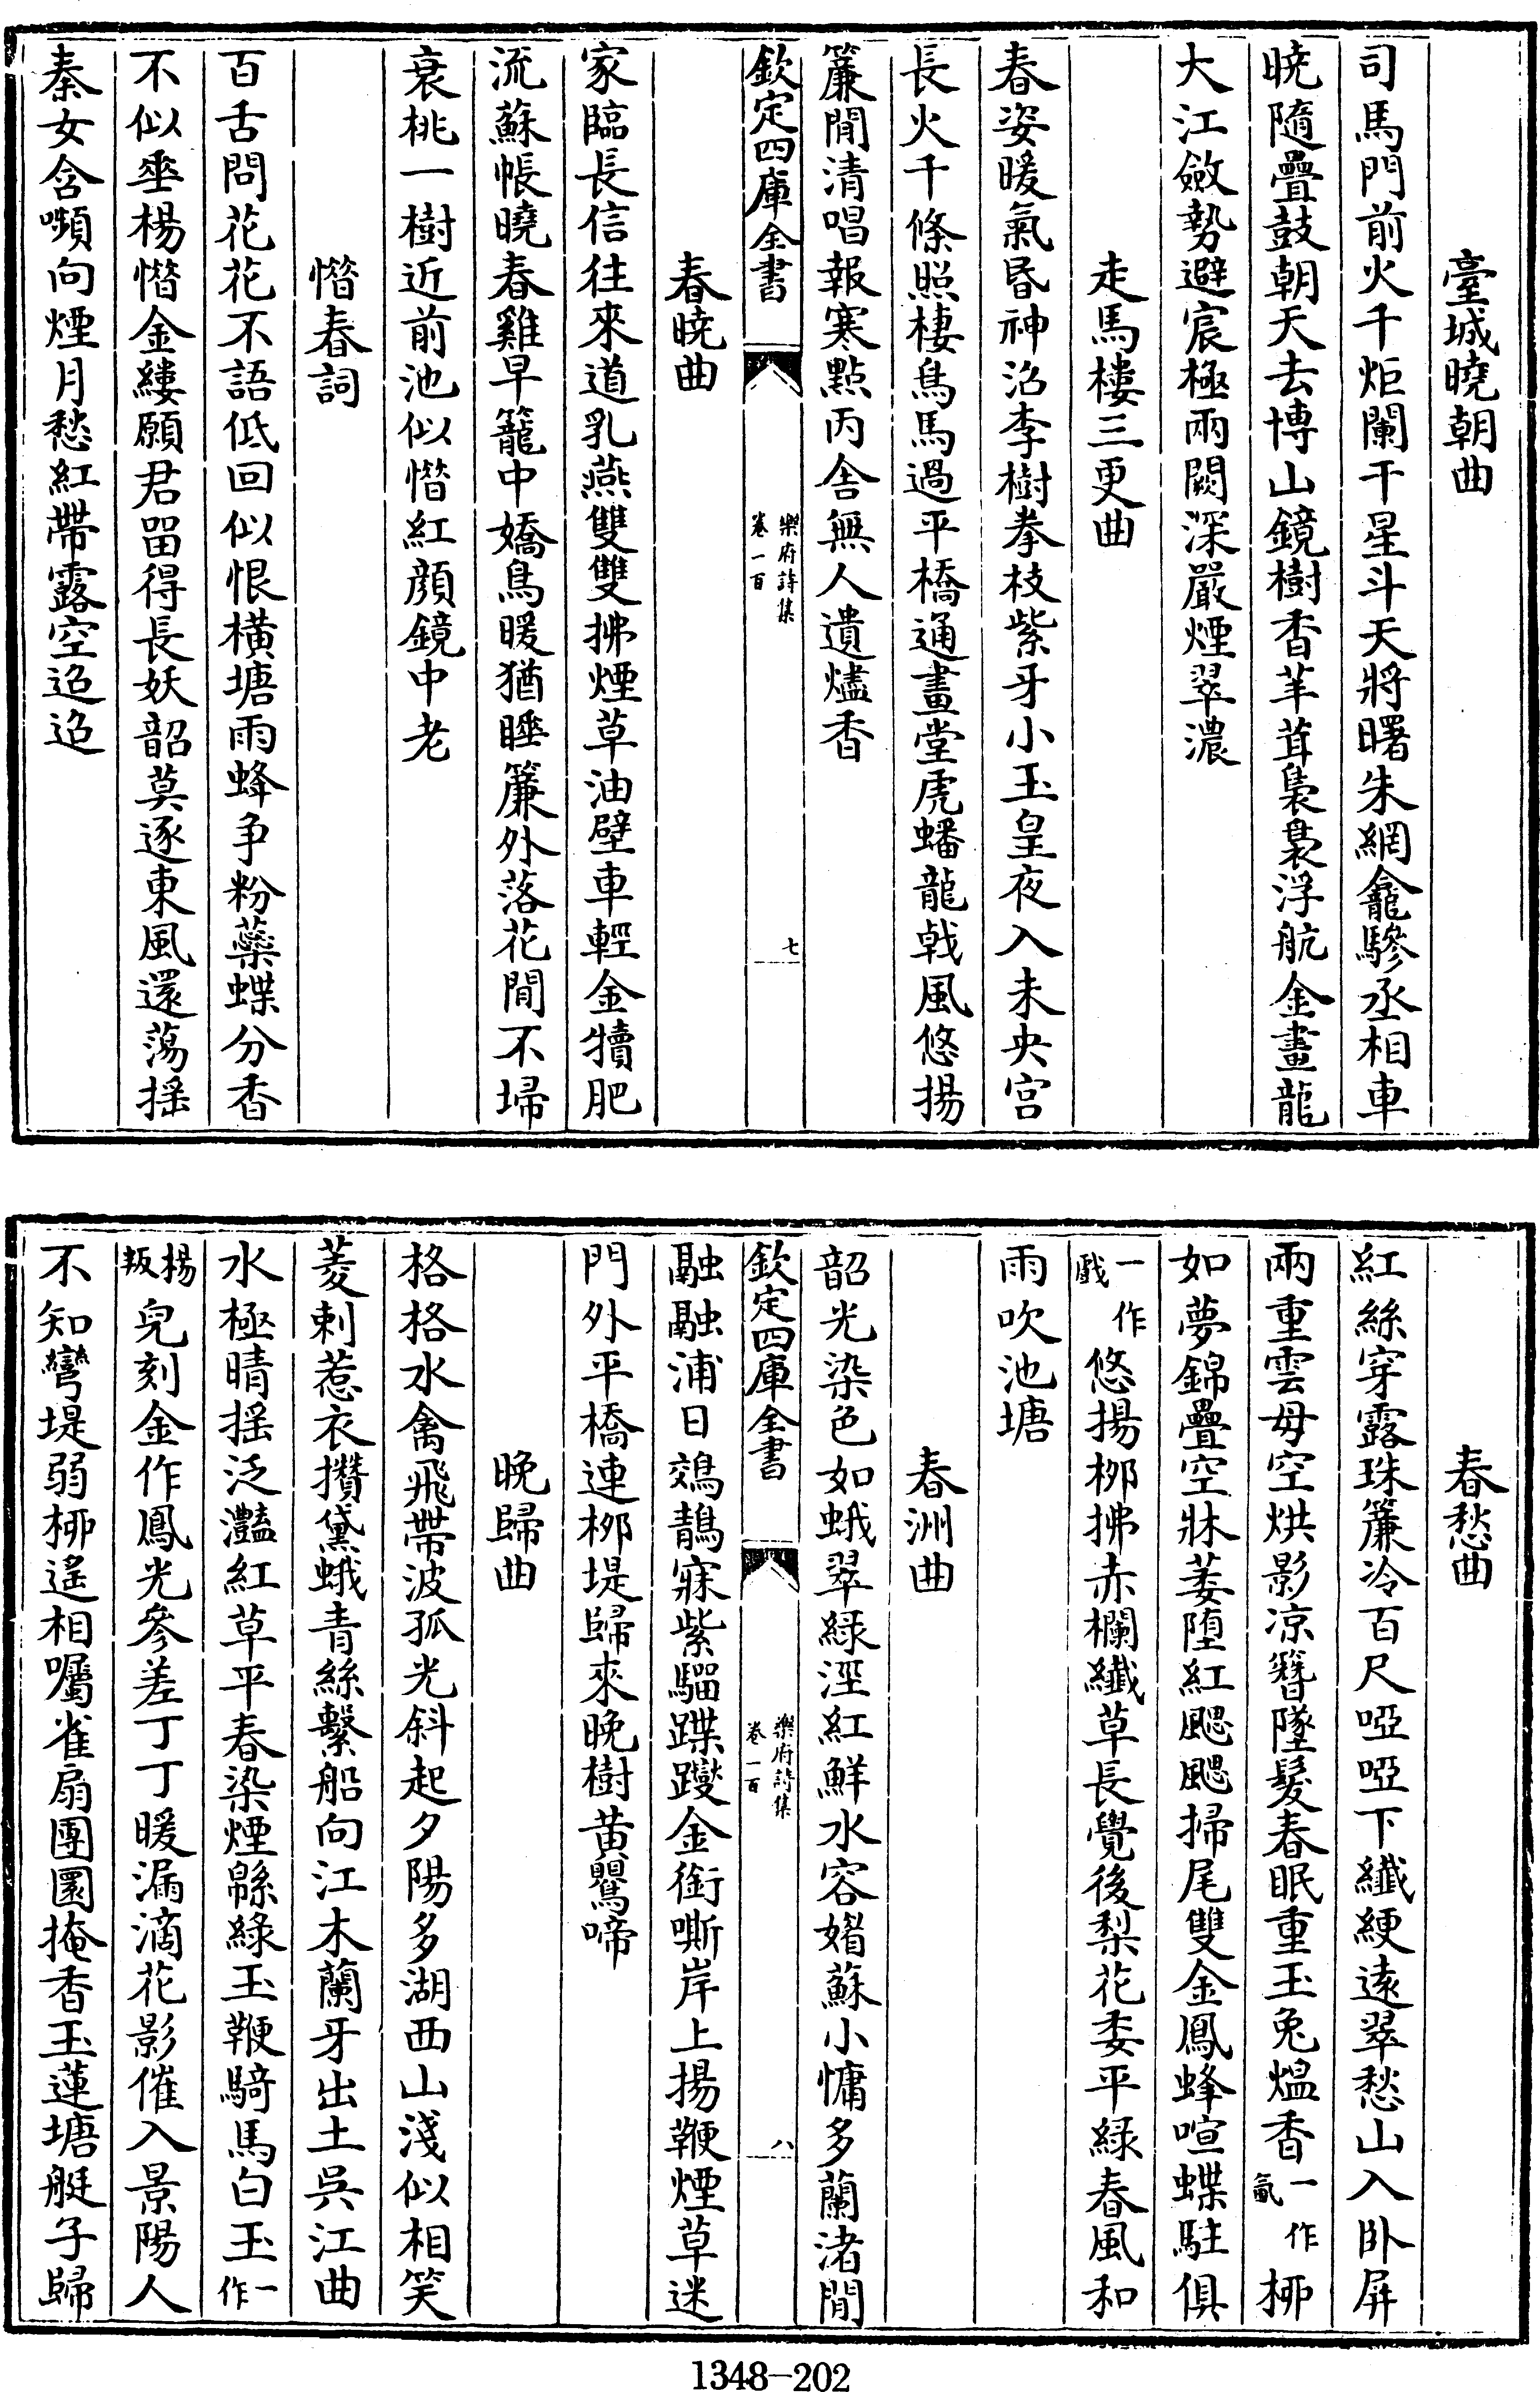 臺城曉朝曲
司馬門前火千炬闌干星斗天將曙朱網龕鬖丞相車
曉隨疊鼓朝天去博山鏡樹香茸茸裊裊浮航金畫龍
大江斂勢避宸極兩闕深嚴煙翠濃
走馬樓三更曲
春姿暖氣昏神沼李樹拳枝紫牙小玉皇夜入未央宮
長火千條照棲鳥馬過平橋通畫堂虎蟠龍戟風悠揚
簾間清唱報寒點丙舍無人遺燼香
欽定四庫全書
樂府詩集
卷一百
七
春曉曲
家臨長信往來道乳燕雙雙拂煙草油壁車輕金犢肥
流蘇帳曉春雞早籠中嬌鳥暖猶睡簾外落花閒不埽
衰桃一樹近前池似惜紅顔鏡中老
惜春詞
百舌問花花不語低回似恨橫塘雨蜂爭粉蘂蝶分香
不似垂楊惜金縷願君留得長妖韶莫逐東風還蕩揺
秦女含嚬向煙月愁紅帶露空迢迢
春愁曲
紅絲穿露珠簾冷百尺啞啞下纖綆遠翠愁山入臥屏
兩重雲母空烘影凉簪墜髮春眠重玉兔熅香一作氤柳
如夢錦疊空牀委墮紅颸颸掃尾雙金鳳蜂喧蝶駐俱
一作戲悠揚柳拂赤欄纖草長覺後梨花委平綠春風和
雨吹池塘
春洲曲
韶光染色如蛾翠綠溼紅鮮水容媚蘇小慵多蘭渚閒
欽定四庫全書
樂府詩集
卷一百
八
融融浦日鵁鶄寐紫騮蹀躞金銜嘶岸上揚鞭煙草迷
門外平橋連柳堤歸來晚樹黄鸎啼
晚歸曲
格格水禽飛帶波孤光斜起夕陽多湖西山淺似相笑
菱刺惹衣攢黛蛾青絲繫船向江木蘭牙出土吳江曲
水極晴揺泛灩紅草平春染煙緜綠玉鞭騎馬白玉一作
楊叛兒刻金作鳳光參差丁丁暖漏滴花影催入景陽人
不知彎堤弱柳遙相囑雀扇團圓掩香玉蓮塘艇子歸
1348-202